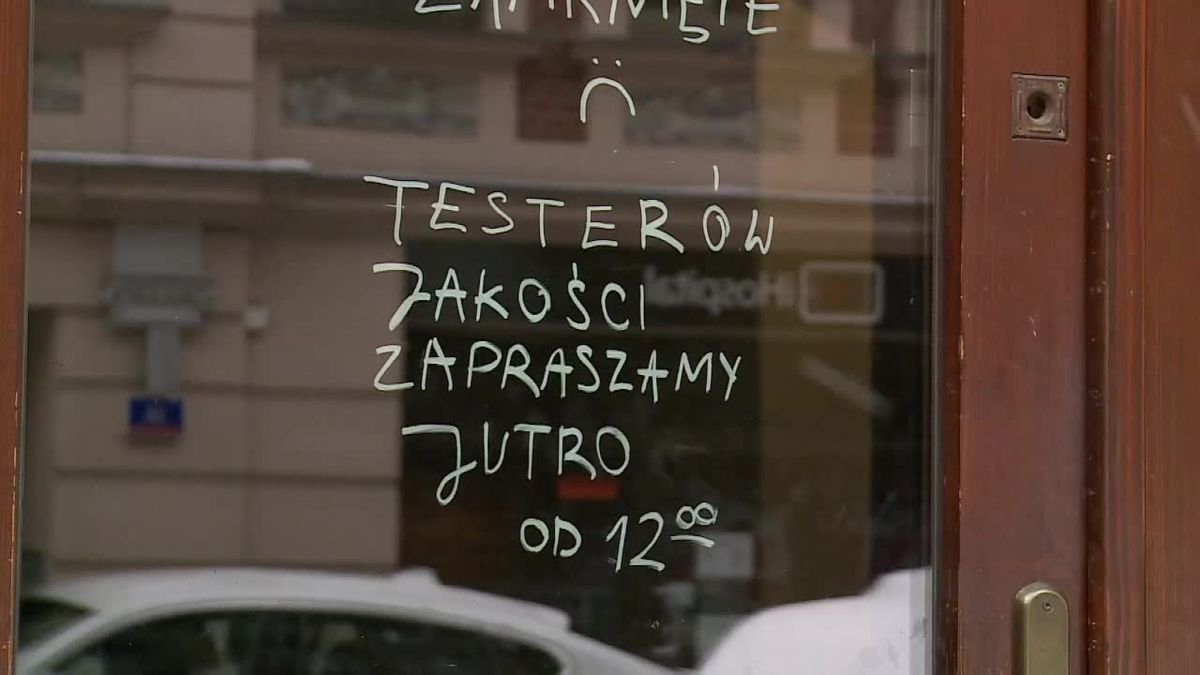 ZAMKNIĘTE
TESTERÓW
JAKOŚCI
ZAPRASZAMY
JUTRO
OD 12⁰⁰
Hospital